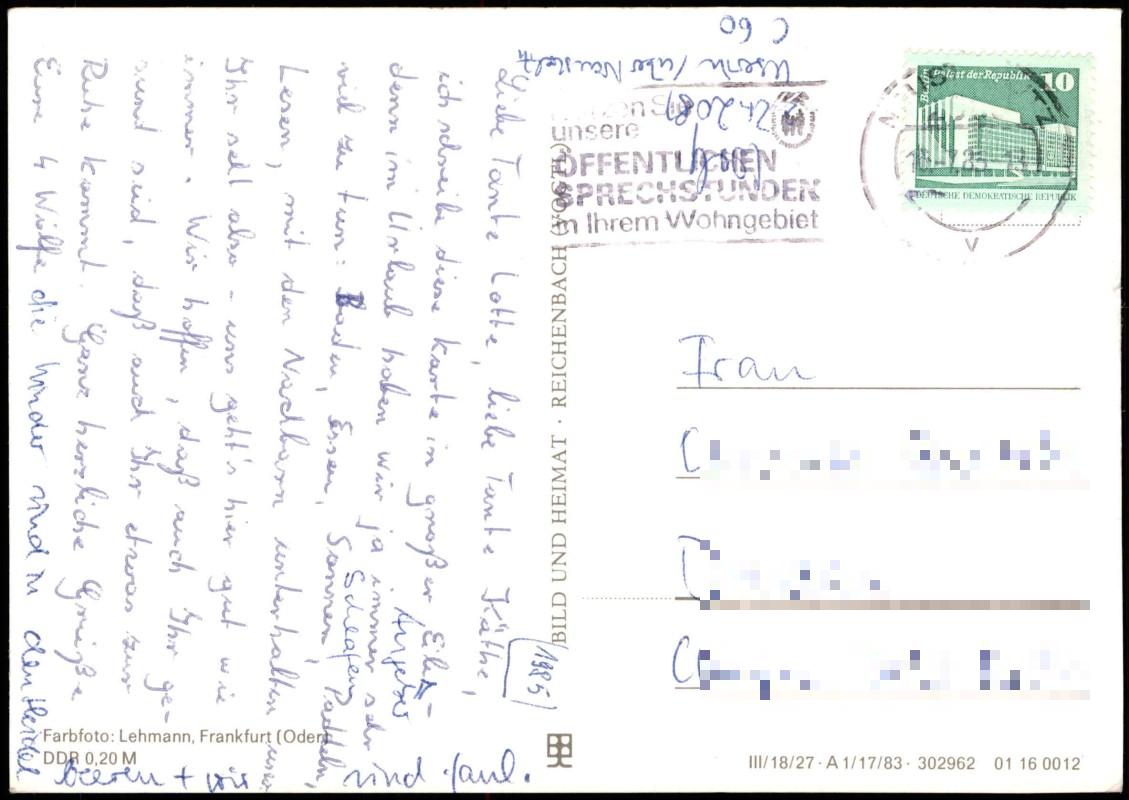 Liebe Tante Lotte, liebe Tante Käthe,
ich schreibe diese Karte in großer Eile –
denn im Urlaub haben wir ja immer sehr
viel zu tun: Baden, Essen, Sonnen, Paddeln,
Angeln,
Schlafen,
Lesen, mit den Nachbarn unterhalten usw.
Ihr seht also – uns geht's hier gut wie
immer. Wir hoffen, daß auch Ihr ge-
sund seid, daß auch Ihr etwas zur
Ruhe kommt. Ganz herzliche Grüße
Eure 4 Wölfe die Kinder sind in den Heidel
beeren + wir sind faul.
(1985)
Wolf
2082
Userin / über Neustrelitz
C 60
Nutzen Sie
unsere
ÖFFENTLICHEN
SPRECHSTUNDEN
in Ihrem Wohngebiet
Berlin Palast der Republik 10
DEUTSCHE DEMOKRATISCHE REPUBLIK
v
BILD UND HEIMAT · REICHENBACH (VOGTL)
Frau
Farbfoto: Lehmann, Frankfurt (Oder)
DDR 0,20 M
III/18/27 · A 1/17/83 · 302962 01 16 0012